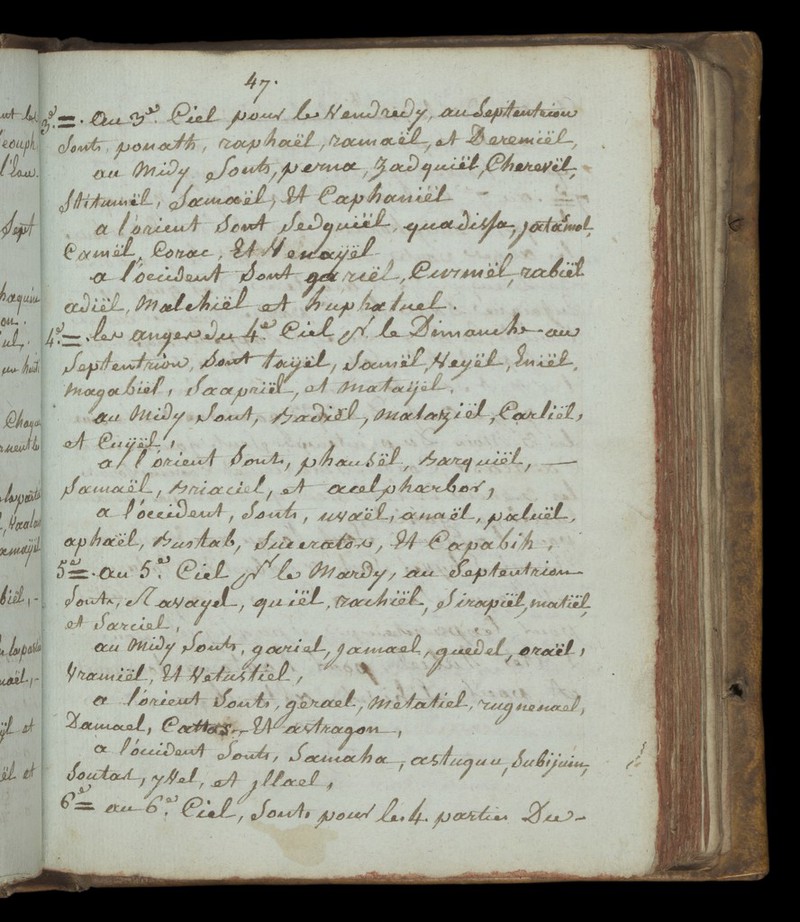 47.
3.e =. au 3.e Ciel pour le Vendredy, au Septentrion
Sont, ponath, raphaël, ramaël, et Deremiël,
au Midy Sont, perna, Zadquiël, Cherevël,
Stitumiël, Samaël, Et Caphaniël
a l'orient Sont Sedquiël, quadissa, jatamol,
Camiël, Corac, Et Venayël
a l'occident Sont gariel, Curmiël, rabiël
adiël, Malchiël et huphatuel.
4.e =. les anges du 4.e Ciel pr. le Dimanche au
Septentrion, Sont tayël, Samël, Veyël, Eniël,
Magabiel, Saapriël, et matayël,
au Midy Sont, Badiël, Mataziël, Carliël,
et Cuyël,
a l'orient Sont, phausël, Barquiël, —
Samaël, Briaciel, et acelpharbor,
a l'occident, Sont, uvaël, anaël, paluël,
aphaël, Bustab, Suceratos, Et Capabih,
5.e =. au 5.e Ciel pr le Mardy, au Septentrion
Sont, Ravayel, quiël, rachiël, Sirapiël, matiël,
et Sarciel,
au Midy Sont, gariel, jamael, guedel, oraël,
Vramiël, Et Vetustiel,
a l'orient Sont, gerael, Metatiel, rugnenael,
Damael, Cattas, Et astragon,
a l'occident Sont, Samaha, astuguu, Subijuin,
Soutas, yHel, et jllael,
6.e = au 6.e Ciel, Sont pour les 4. parties Du-